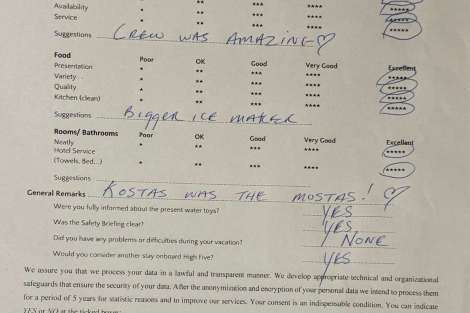 Availability * ** *** **** *****
Service * ** *** **** *****
Suggestions CREW WAS AMAZING
Food Poor OK Good Very Good Excellent
Presentation * ** *** **** *****
Variety * ** *** **** *****
Quality * ** *** **** *****
Kitchen (clean) * ** *** **** *****
Suggestions BIGGER ICE MAKER
Rooms/ Bathrooms Poor OK Good Very Good Excellent
Neatly * ** *** **** *****
Hotel Service
(Towels, Bed...) * ** *** **** *****
Suggestions
General Remarks KOSTAS WAS THE MOSTAS!
Were you fully informed about the present water toys? YES
Was the Safety Briefing clear? YES
Did you have any problems or difficulties during your vacation? NONE
Would you consider another stay onboard High Five? YES
We assure you that we process your data in a lawful and transparent manner. We develop appropriate technical and organizational
safeguards that ensure the security of your data. After the anonymization and encryption of your personal data we intend to process them
for a period of 5 years for statistic reasons and to improve our services. Your consent is an indispensable condition. You can indicate
YES or NO at the ticked boxes: